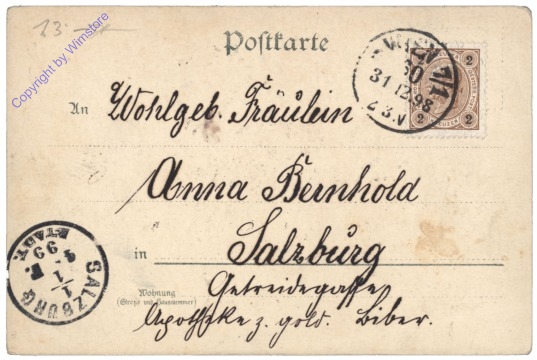 23.-
Copyright by Wimstore
Postkarte
WIEN 1/1
31.12.98
2
2
2
2
An Wohlgeb. Fräulein
Anna Bernhold
in Salzburg
Wohnung
(Straße und Hausnummer)
Getreidegasse
Apotheke z. gold. Biber.
SALZBURG
STADT
1 1 99